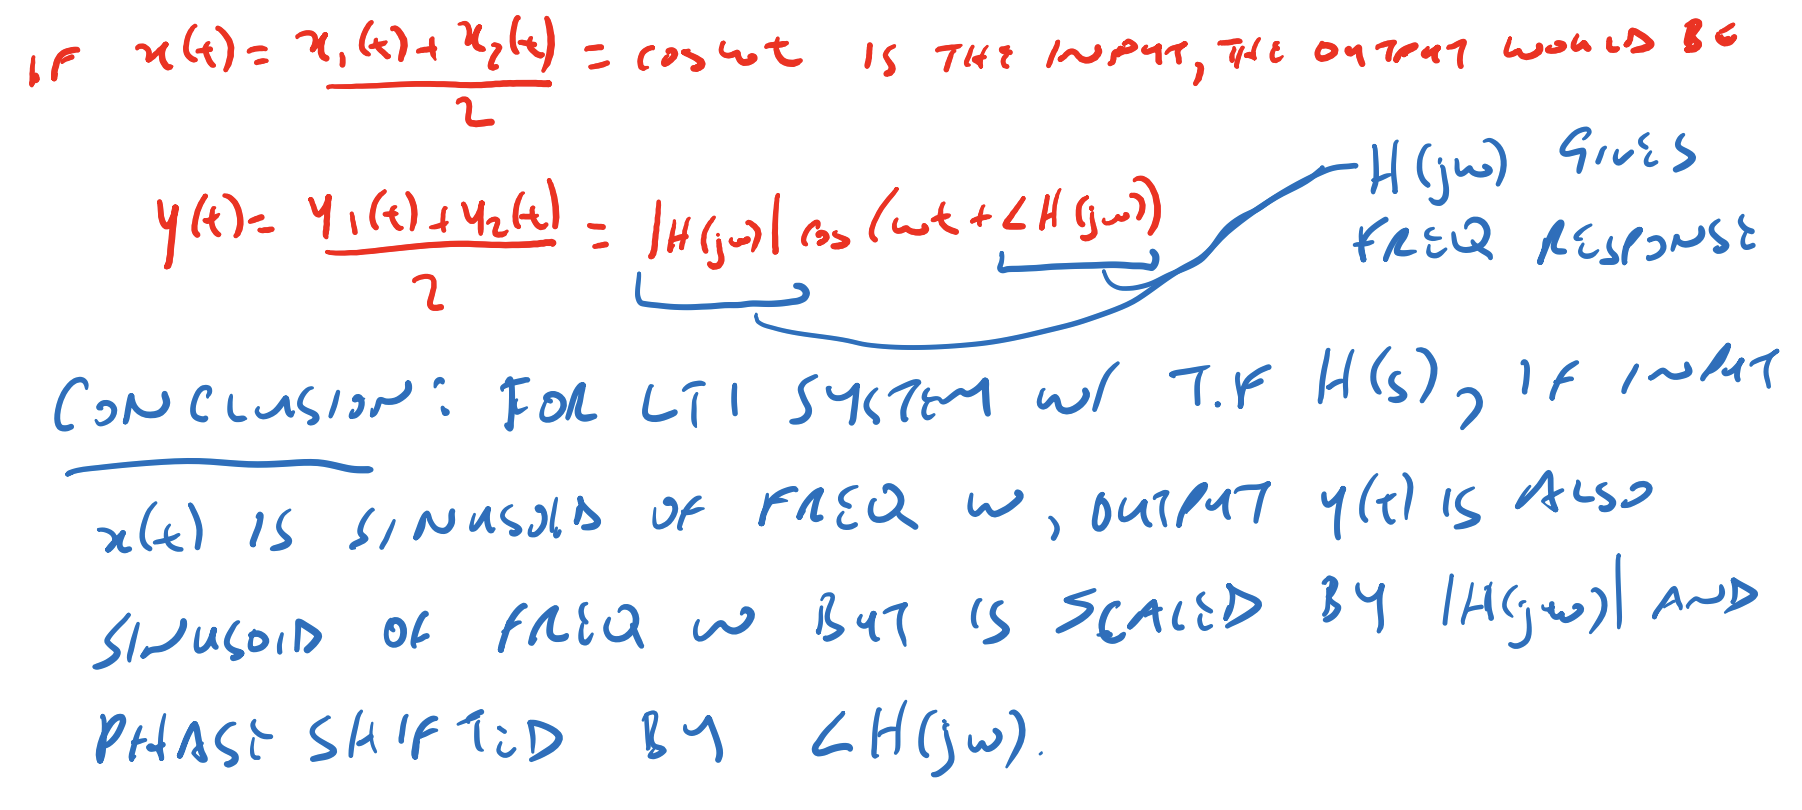 IF x(t) = (x₁(t) + x₂(t))/2 = cos ωt IS THE INPUT, THE OUTPUT WOULD BE
y(t) = (y₁(t) + y₂(t))/2 = |H(jω)| cos (ωt + ∠H(jω))
H(jω) GIVES
FREQ RESPONSE
CONCLUSION: FOR LTI SYSTEM W/ T.F H(s), IF INPUT
x(t) IS SINUSOID OF FREQ ω, OUTPUT y(t) IS ALSO
SINUSOID OF FREQ ω BUT IS SCALED BY |H(jω)| AND
PHASE SHIFTED BY ∠H(jω).